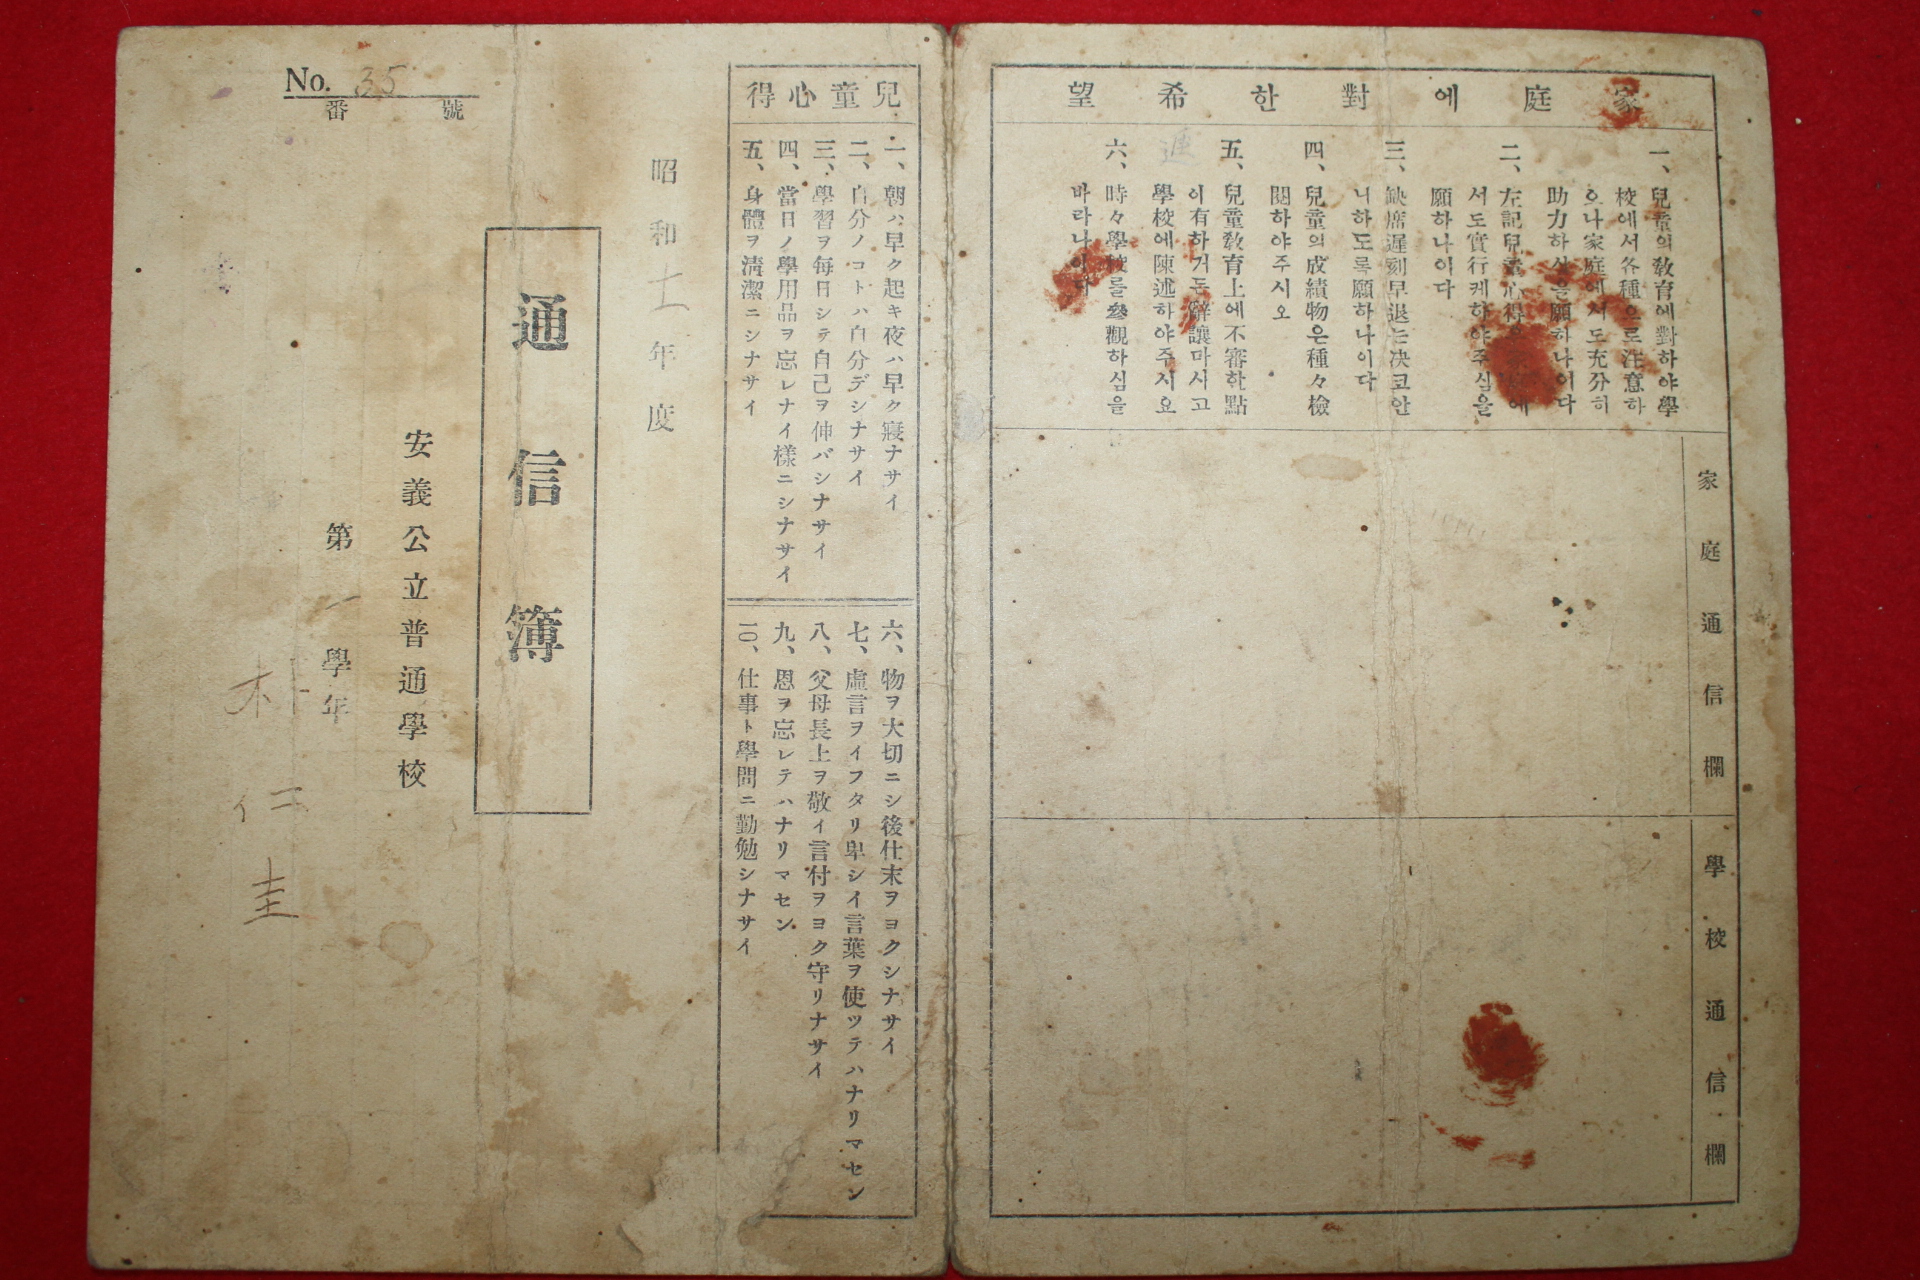 家庭에對한希望
一、兒童의敎育에對하야學
校에서各種으로注意하
으나家庭에서도充分히
助力하심을願하나이다
二、左記兒童心得을家庭에
서도實行케하야주심을
願하나이다
三、缺席遲刻早退는决코안
니하도록願하나이다
四、兒童의成績物은種々檢
閱하야주시오
五、兒童敎育上에不審한點
이有하거든辭讓마시고
學校에陳述하야주시요
六、時々學校를參觀하심을
바라나이다
家庭通信欄
學校通信欄
兒童心得
一、朝ハ早ク起キ夜ハ早ク寢ナサイ
二、自分ノコトハ自分デシナサイ
三、學習ヲ每日シテ自己ヲ伸バシナサイ
四、當日ノ學用品ヲ忘レナイ樣ニシナサイ
五、身體ヲ淸潔ニシナサイ
六、物ヲ大切ニシ後仕末ヲヨクシナサイ
七、虛言ヲイフタリ卑シイ言葉ヲ使ツテハナリマセン
八、父母長上ヲ敬イ言付ヲヨク守リナサイ
九、恩ヲ忘レテハナリマセン
一〇、仕事ト學問ニ勤勉シナサイ
昭和十一年度
通信簿
安義公立普通學校
第一學年
朴仁圭
No. 35
番號